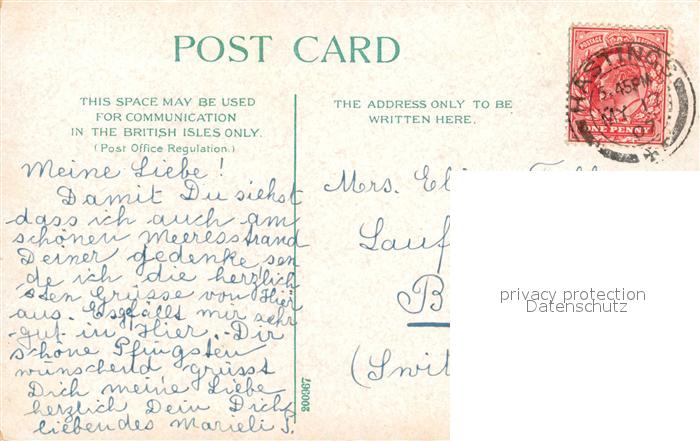 POST CARD
THIS SPACE MAY BE USED
FOR COMMUNICATION
IN THE BRITISH ISLES ONLY.
(Post Office Regulation.)
THE ADDRESS ONLY TO BE
WRITTEN HERE.
POSTAGE
ONE PENNY
HASTINGS
5.45PM
MY 1
Meine Liebe!
Damit Du siehst
dass ich auch am
schönen Meeresstrand
Deiner gedenke sen
de ich die herzlich
sten Grüsse von Hier
aus. Es gefällt mir sehr
gut in Hier. Dir
schöne Pfingsten
wünschend grüsst
Dich meine Liebe
herzlich Dein Dich
liebendes Marieli S.
Mrs.
Lauf
B
(Swit
200967
privacy protection
Datenschutz